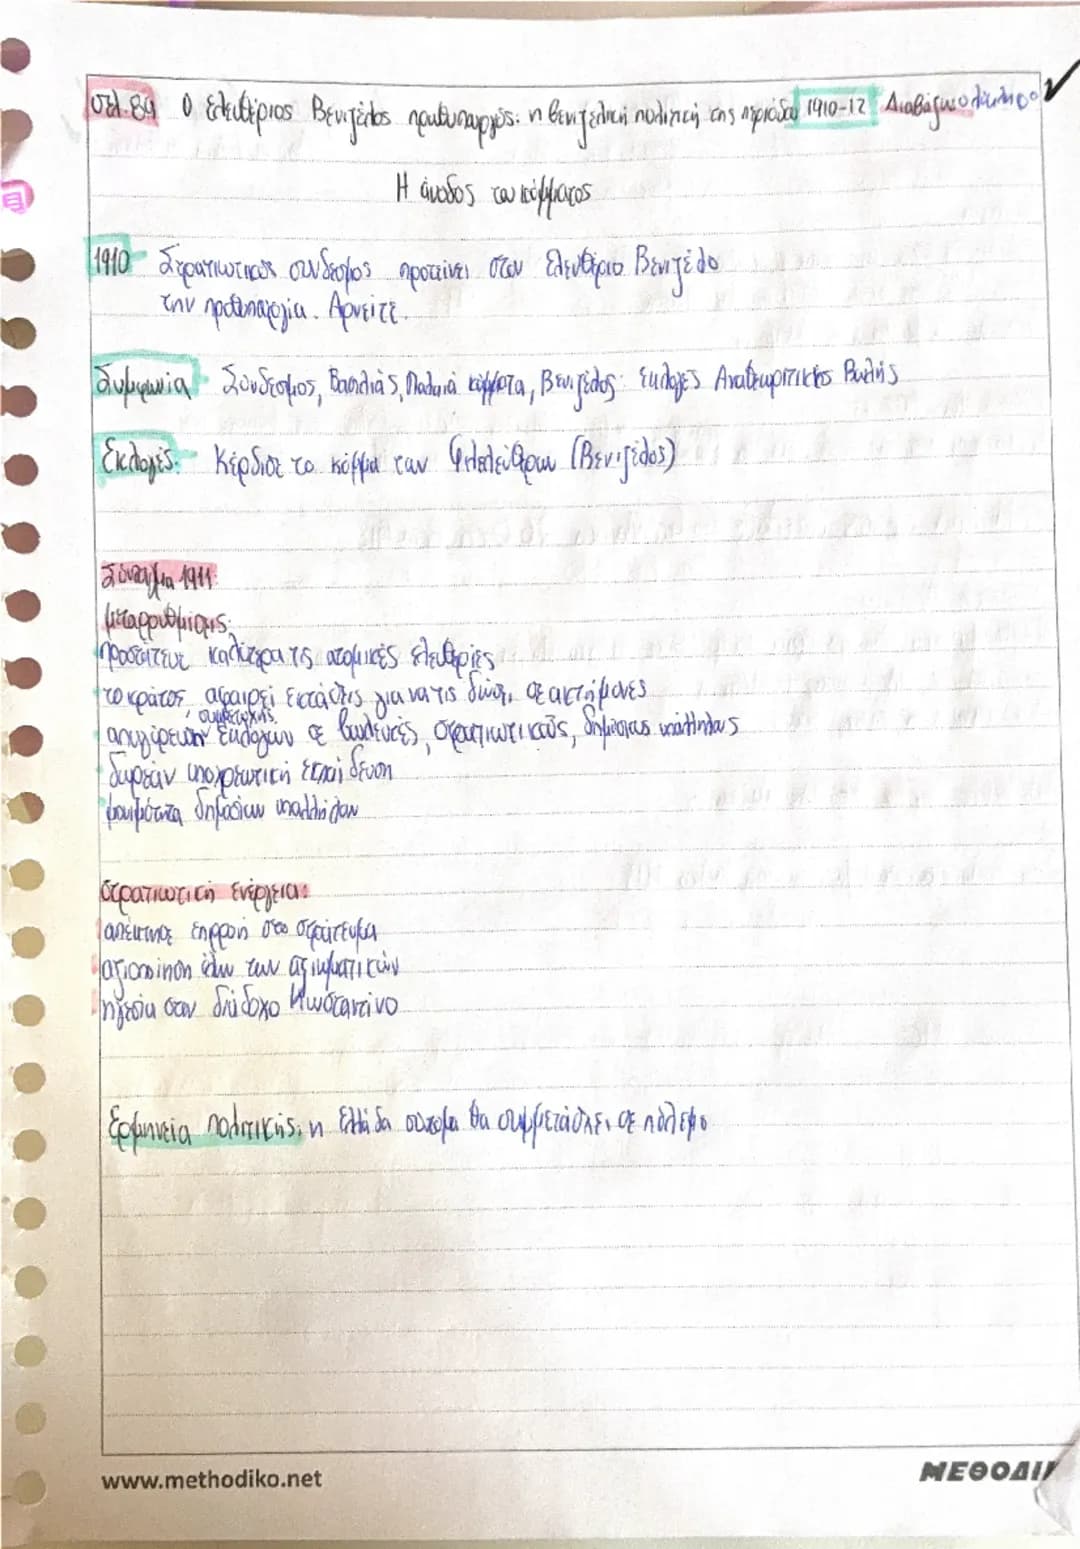 σελ.89 Ο Ελευθέριος Βενιζέλος πρωθυπουργός: η βενιζελική πολιτική της περιόδου 1910-12 Διαβάζω ολόκληρο
Η άνοδος του κόμματος
1910 Στρατιωτικος συνδεσμος προτείνει στον Ελευθέριο Βενιζέλο
την πρωθυπουργία. Αρνείτε.
Συμφωνία Σύνδεσμος, Βασιλιάς, Παλαιά κόμματα, Βενιζέλος: Εκλογές Αναθεωριτικής Βουλής
Εκλογές: Κέρδισε το κόμμα των Φιλελεύθερων (Βενιζέλος)
Σύνταγμα 1911:
μεταρρυθμισεις:
προστάτευε καλύτερα τις ατομικές ελευθερίες
το κράτος αφαιρεί εκτάσεις για να τις δώσει σε ακτήμονες
συμετοχής
απαγόρευση εκλογων σε βουλευτές, στρατιωτικούς, δημόσιους υπάλληλους
δωρεάν υποχρεωτική εκπαίδευση
μονιμότητα δημοσίων υπαλλήλων
στρατιωτική ενέργεια:
επιρροή στο στράτευμα
αξιοποίηση όλων των αξιωματικών
ηγεσία στον διάδοχο Κωσταντίνο
Ερμηνεία πολιτικής: η Ελλάδα σύντομα θα συμμετάσχει σε πόλεμο
www.methodiko.net
ΜΕΘΟΔΙ